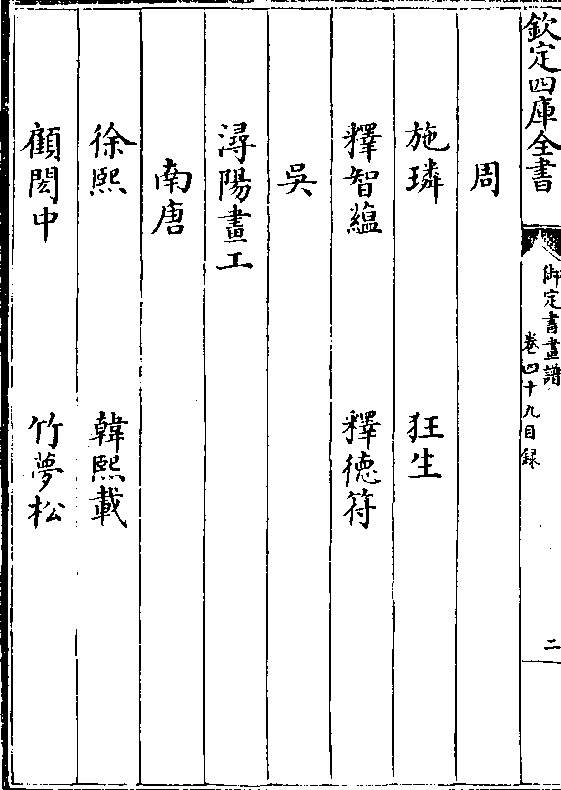 欽定四庫全書
御定書畫譜
卷四十九目録
二
周
施璘　狂生
釋智藴　釋德符
吳
潯陽畫工
南唐
徐熙　韓熙載
顧閎中　竹夢松